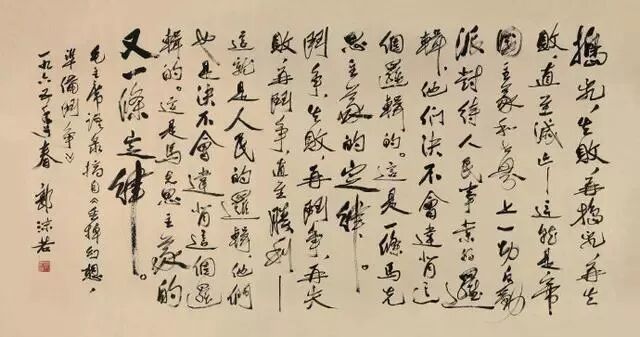 搗亂，失敗，再搗亂，再失
敗，直至滅亡——這就是帝
國主義和世界上一切反動
派對待人民事業的邏
輯，他們決不會違背這
個邏輯的。這是一條馬克
思主義的定律。
鬥爭，失敗，再鬥爭，再失
敗，再鬥爭，直至勝利——
這就是人民的邏輯，他們
也是決不會違背這個邏
輯的。這是馬克思主義的
又一條定律。
毛主席語录摘自《丟掉幻想，
準備鬥爭》
一九六五年春 郭沫若